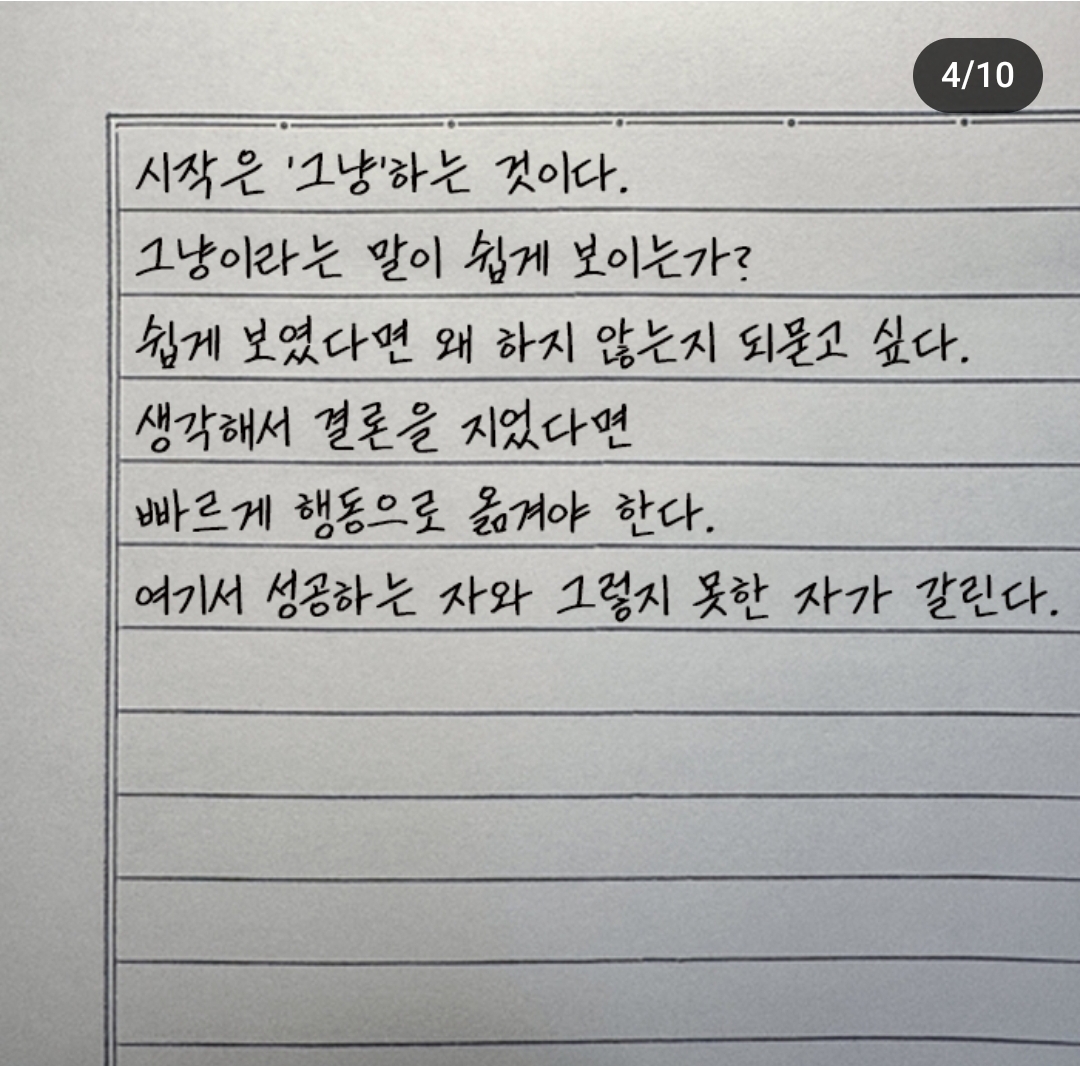 4/10
시작은 '그냥'하는 것이다.
그냥이라는 말이 쉽게 보이는가?
쉽게 보였다면 왜 하지 않는지 되묻고 싶다.
생각해서 결론을 지었다면
빠르게 행동으로 옮겨야 한다.
여기서 성공하는 자와 그렇지 못한 자가 갈린다.